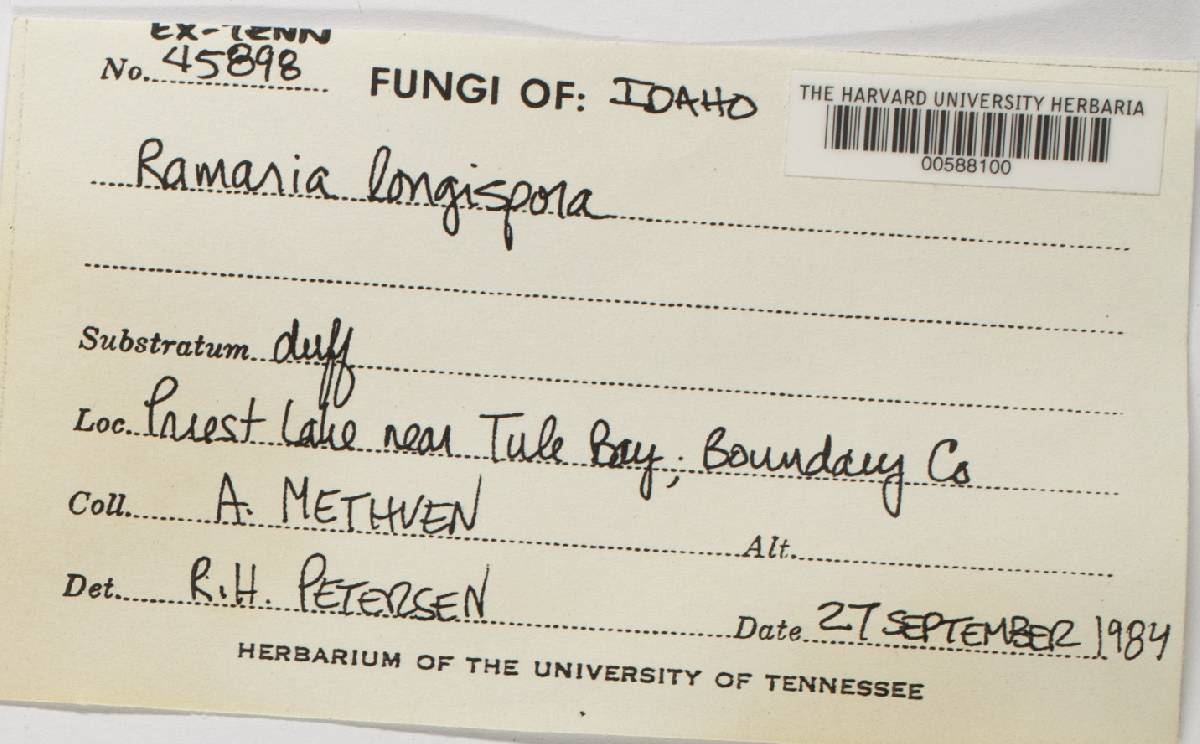 EX-TENN
No. 45898
FUNGI OF: IDAHO
THE HARVARD UNIVERSITY HERBARIA
00588100
Ramaria longispora
Substratum duff
Loc. Priest Lake near Tule Bay; Boundary Co
Coll. A. METHVEN
Alt.
Det. R.H. PETERSEN
Date 27 SEPTEMBER 1984
HERBARIUM OF THE UNIVERSITY OF TENNESSEE